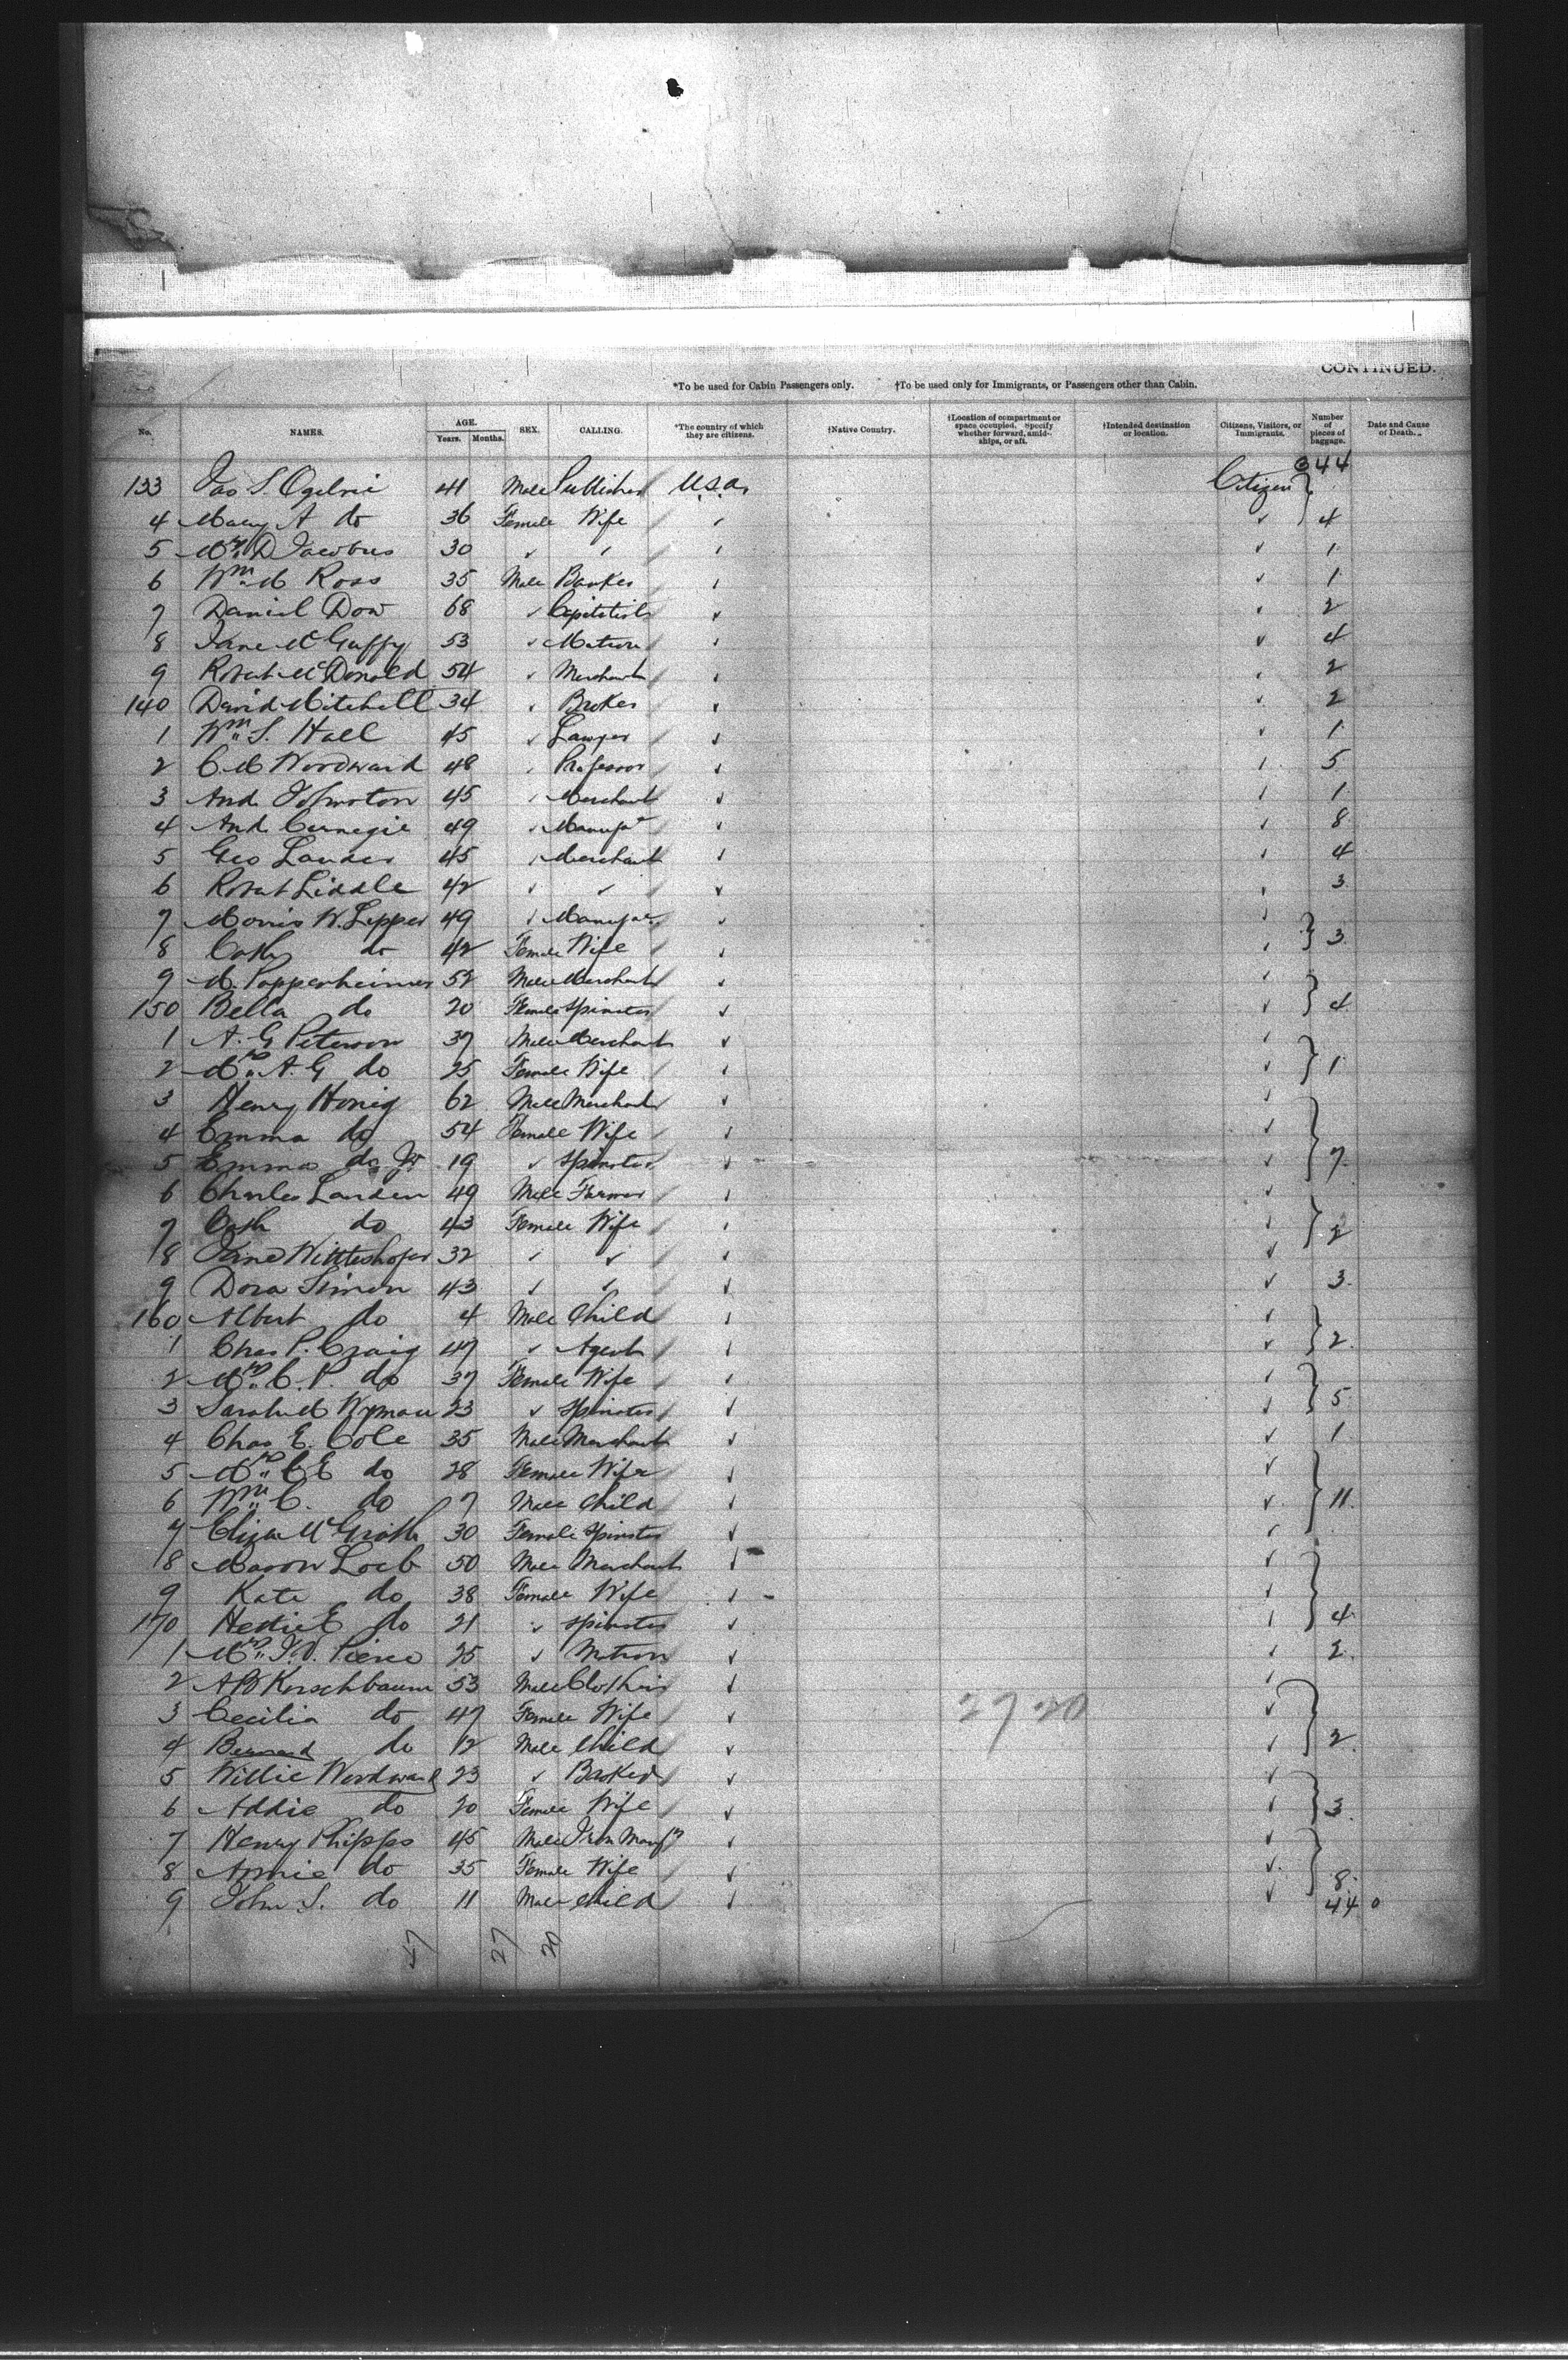 CONTINUED.
*To be used for Cabin Passengers only. †To be used only for Immigrants, or Passengers other than Cabin.
No. NAMES. AGE. Years. Months. SEX. CALLING. *The country of which they are citizens. †Native Country. †Location of compartment or space occupied. Specify whether forward, amidships, or aft. †Intended destination or location. Citizens, Visitors, or Immigrants. Number of pieces of baggage. Date and Cause of Death.
344
133 Jas S. Ogilvie 41 Male Publisher U.S.A. Citizen
4 Mary A do 36 Female Wife 4
5 Mrs D Jacobus 30 1
6 Wm M Ross 35 Male Banker 1
7 Daniel Dow 68 Capitalist 2
8 Jane McGuffy 53 Matron 4
9 Robert McDonald 54 Merchant 2
140 David Mitchell 34 Broker 2
1 Wm S. Hall 45 Lawyer 1
2 C. M Woodward 48 Professor 5
3 And Johnston 45 Merchant 1
4 And Carnegie 49 Manufr 8
5 Geo Lauder 45 Merchant 4
6 Robert Liddle 42 3
7 Morris W. Lepper 49 Manufr
8 Cath do 42 Female Wife 3
9 M. Popperheimer 52 Male Merchant
150 Bella do 20 Female Spinster 4
1 A. G Peterson 37 Male Merchant
2 Mrs A. G do 25 Female Wife 1
3 Henry Honig 62 Male Merchant
4 Emma do 54 Female Wife
5 Emma do Jr 19 Spinster 7
6 Charles Landen 49 Male Farmer
7 Cath do 43 Female Wife 2
8 Jane 32
9 Dora Simon 43 3
160 Albert do 4 Male Child
1 Chas P. Craig 47 Agent 2
2 Mrs C. P. do 37 Female Wife
3 Sarah M Wyman 23 Spinster 5
4 Chas E. Cole 35 Male Merchant 1
5 Mrs C E do 28 Female Wife
6 Wm C. do 7 Male Child 11
7 Eliza McGrath 30 Female Spinster
8 Marow Loeb 50 Male Merchant
9 Kate do 38 Female Wife
170 Hettie E do 21 Spinster 4
1 Mrs J. V. Pierce 25 Matron 2
2 A B Kirschbaum 53 Male Clothier
3 Cecilia do 47 Female Wife 27 20
4 Bernard do 12 Male Child 2
5 Willie Woodward 23 Banker
6 Addie do 20 Female Wife 3
7 Henry Phipps 45 Male Iron Manfr
8 Annie do 35 Female Wife 8
9 John S. do 11 Male Child 440
47 27 20